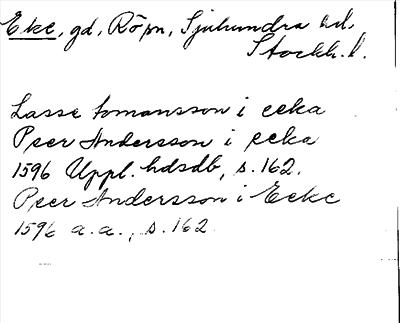 Eke, gd, Röpn, Sjuhundra hd,
Stockh. l.
Lasse tomansson i eeka
Peer Andersson i eeka
1596 Uppl. hdsdb, s. 162.
Peer Andersson i Eeke
1596 a.a., s. 162